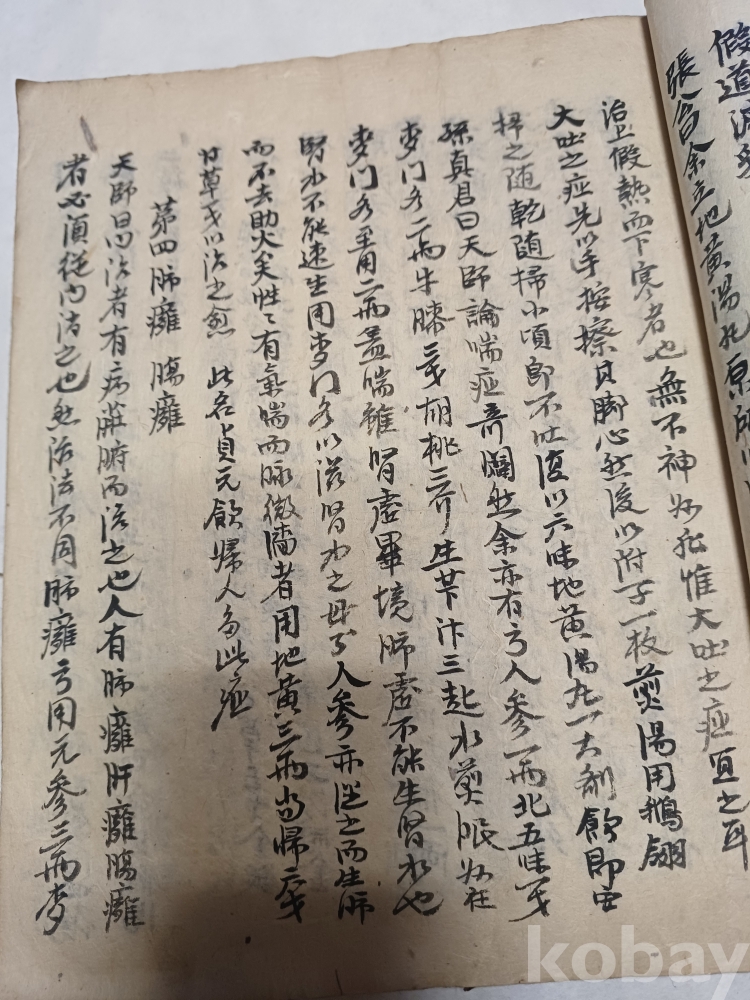 假道
張公曰余立地黃湯
治上假熱而下寒者也無不神妙然惟大吐之症宜之耳
大吐之症先以手按擦其脚心然後以附子一枚煎湯用鵝翎
掃之随乾随掃小頃即不吐後以六味地黃湯九一大劑飲即安
孫真君曰天師論喘症奇闢然余亦有方人參一兩北五味一戔
麥門冬二兩牛膝三戔胡桃三介生薑汁三起水煎服妙在
麥門冬重用二兩盖喘雖腎虛畢境肺虛不能生腎水也
腎水不能速生用麥門冬以滋腎水之母為人參亦隨之而生肺
而不去助火矣性〻有氣喘而脉微濇者用地黃三兩當歸六戔
甘草戔以治之愈 此名貞元飲婦人多此症
苐四肺癰腸癰
天師曰內治者有病在臟腑而治之也人有肺癰肝癰腸癰
者必須從內治之也然治法不同肺癰方用元參三兩麥
kobay